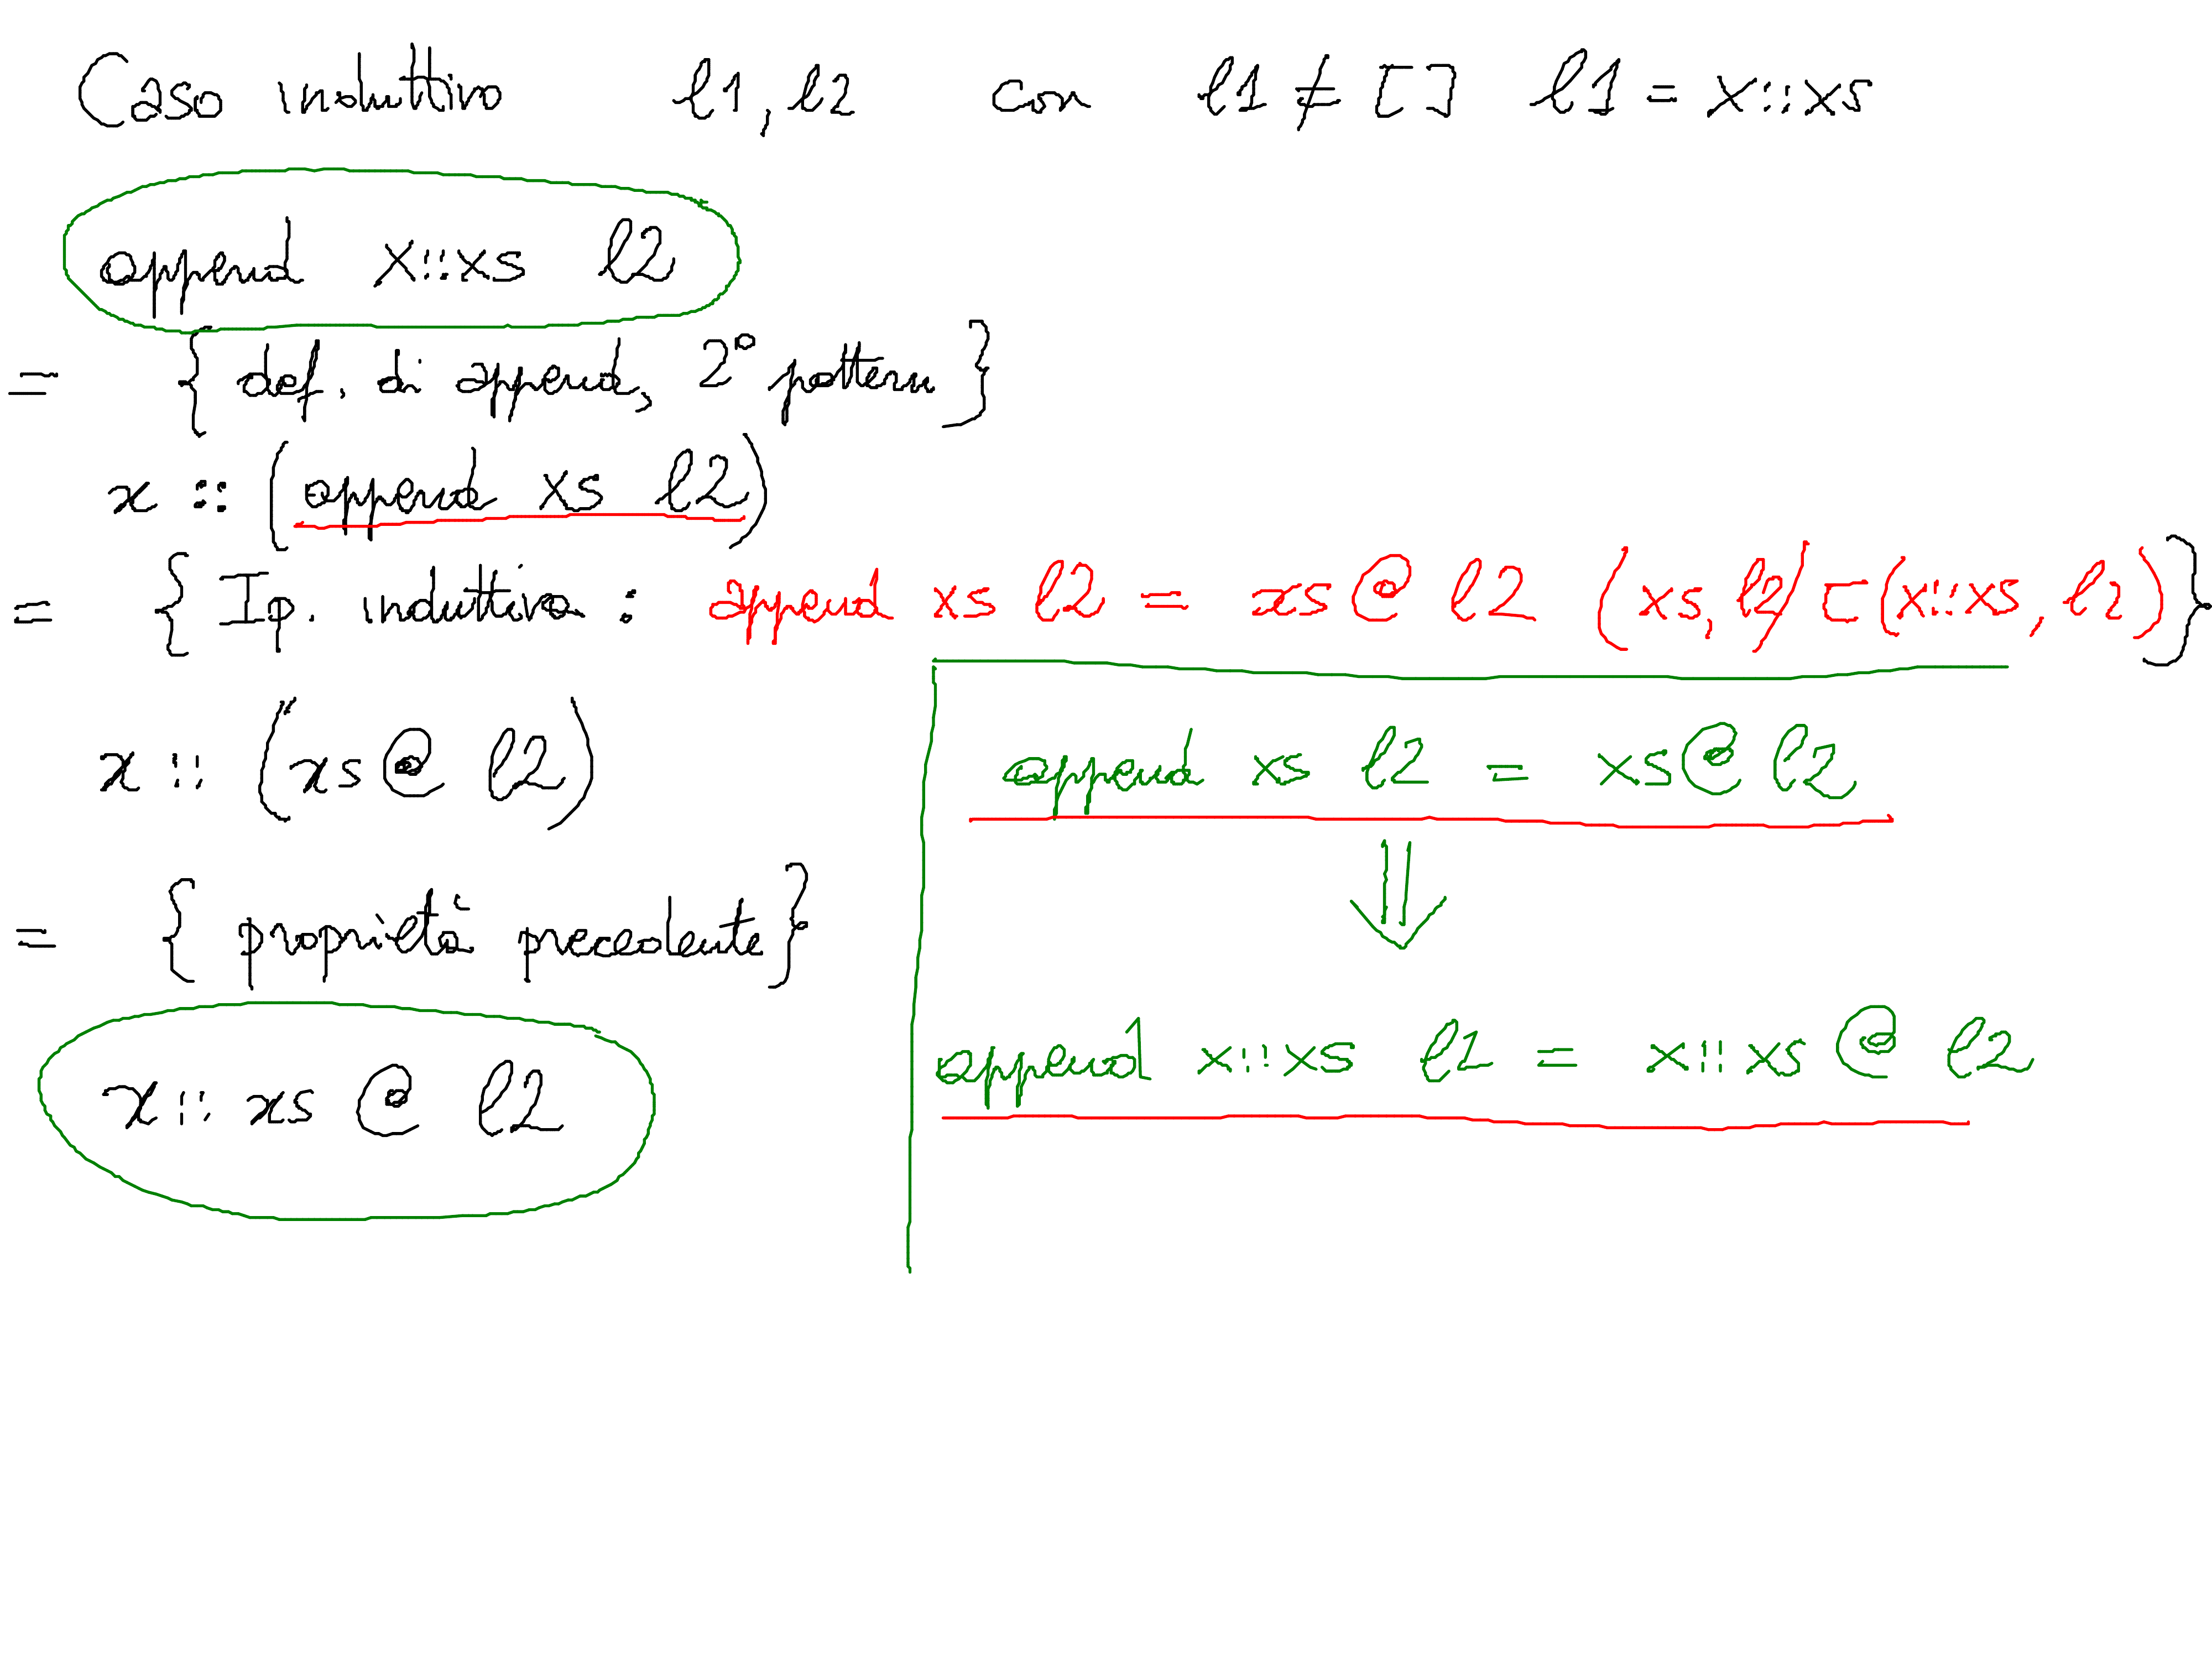 Caso induttivo l1, l2 con l1 ≠ [] l1 = x::xs
append x::xs l2
= { def. di append, 2° pattern }
x :: (append xs l2)
= { Ip. induttiva : append xs l2 = xs @ l2 (xs, l2) ⊏ (x::xs, l2) }
x :: (xs @ l2)
= { proprietà precedente }
x :: xs @ l2
append xs l2 = xs @ l2
⇓
append x::xs l2 = x::xs @ l2